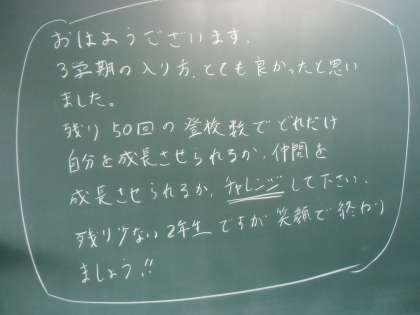 おはようございます。
3学期の入り方、とても良かったと思い
ました。
残り50回の登校数でどれだけ
自分を成長させられるか、仲間を
成長させられるか、チャレンジして下さい。
残り少ない2年生ですが笑顔で終わり
ましょう!!